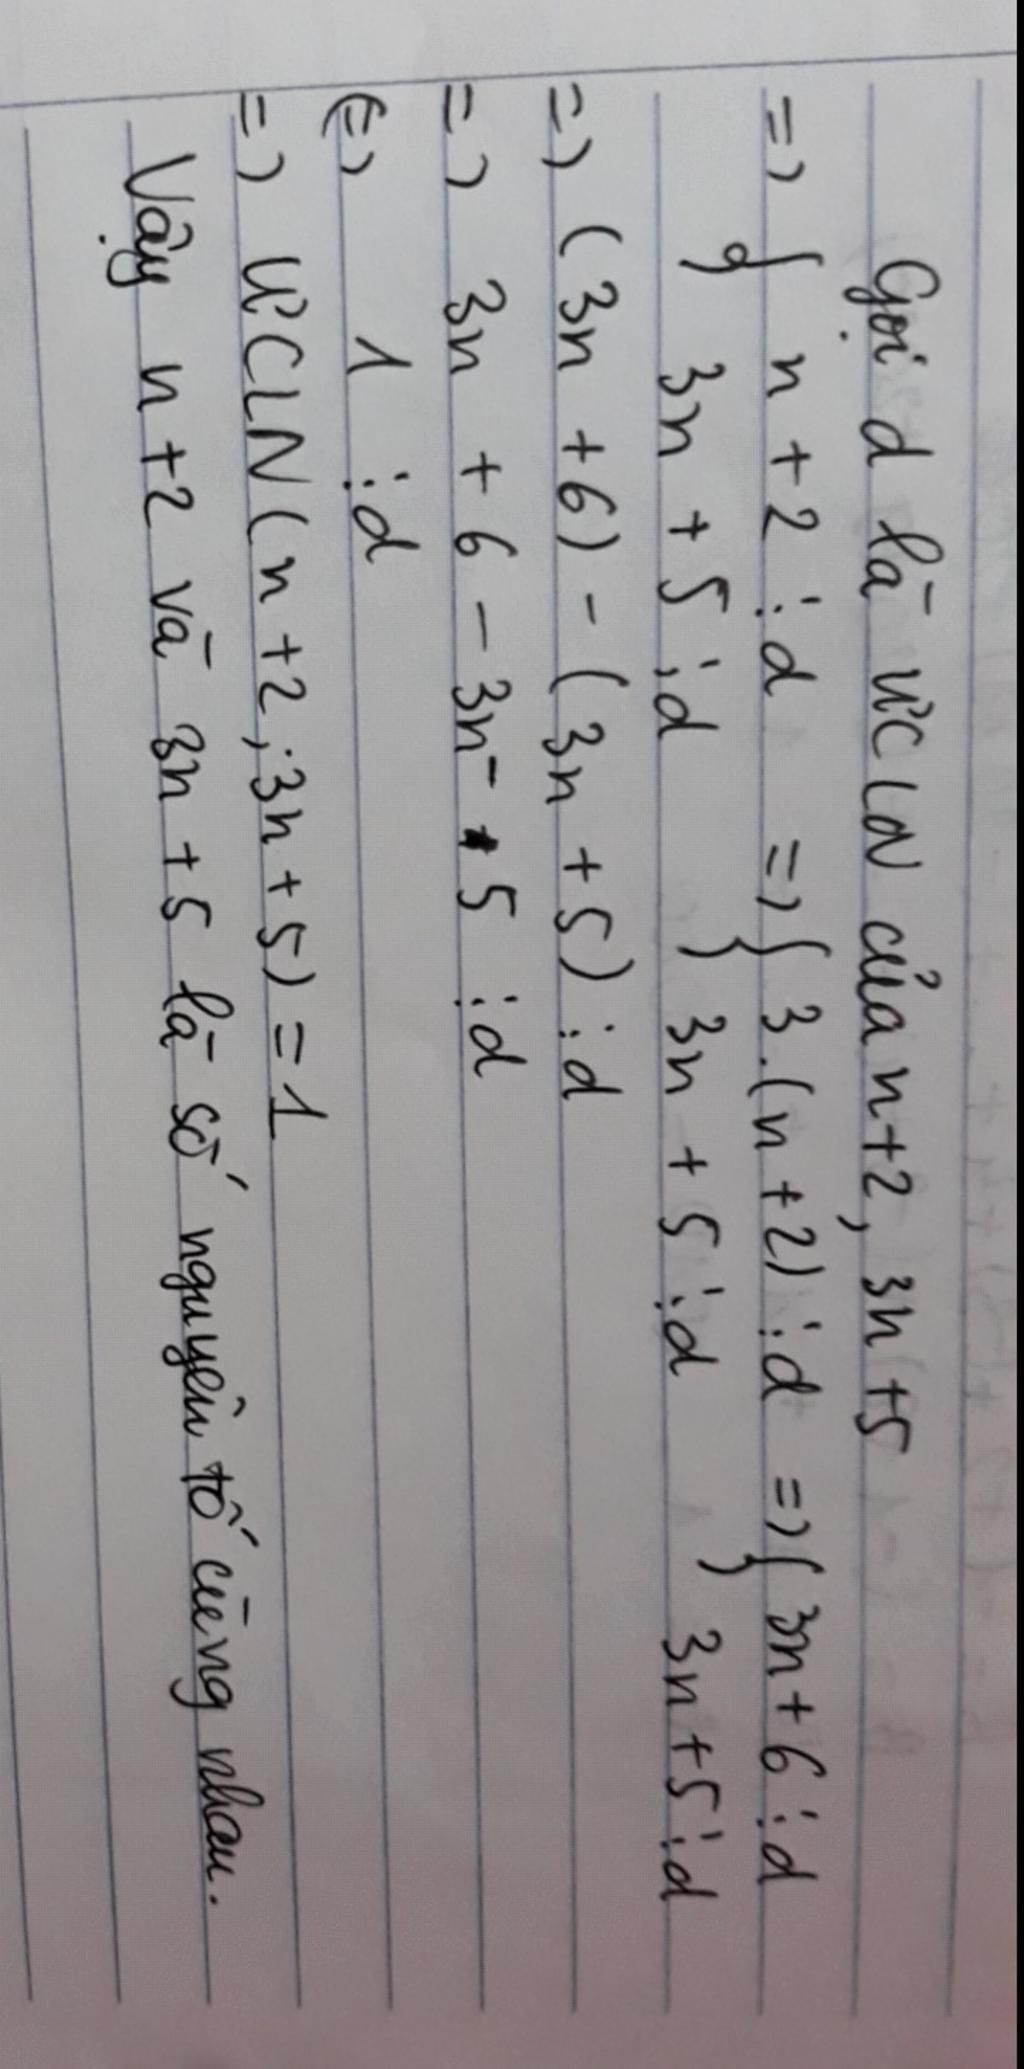 Gọi d là ƯCLN của n+2, 3n+5
=> { n + 2 ⋮ d => { 3.(n+2) ⋮ d => { 3n+6 ⋮ d
3n + 5 ⋮ d 3n + 5 ⋮ d 3n+5 ⋮ d
=> (3n +6) - (3n +5) ⋮ d
=> 3n + 6 - 3n - 5 ⋮ d
(=) 1 ⋮ d
=> ƯCLN (n+2; 3n+5) = 1
Vậy n+2 và 3n+5 là số nguyên tố cùng nhau.